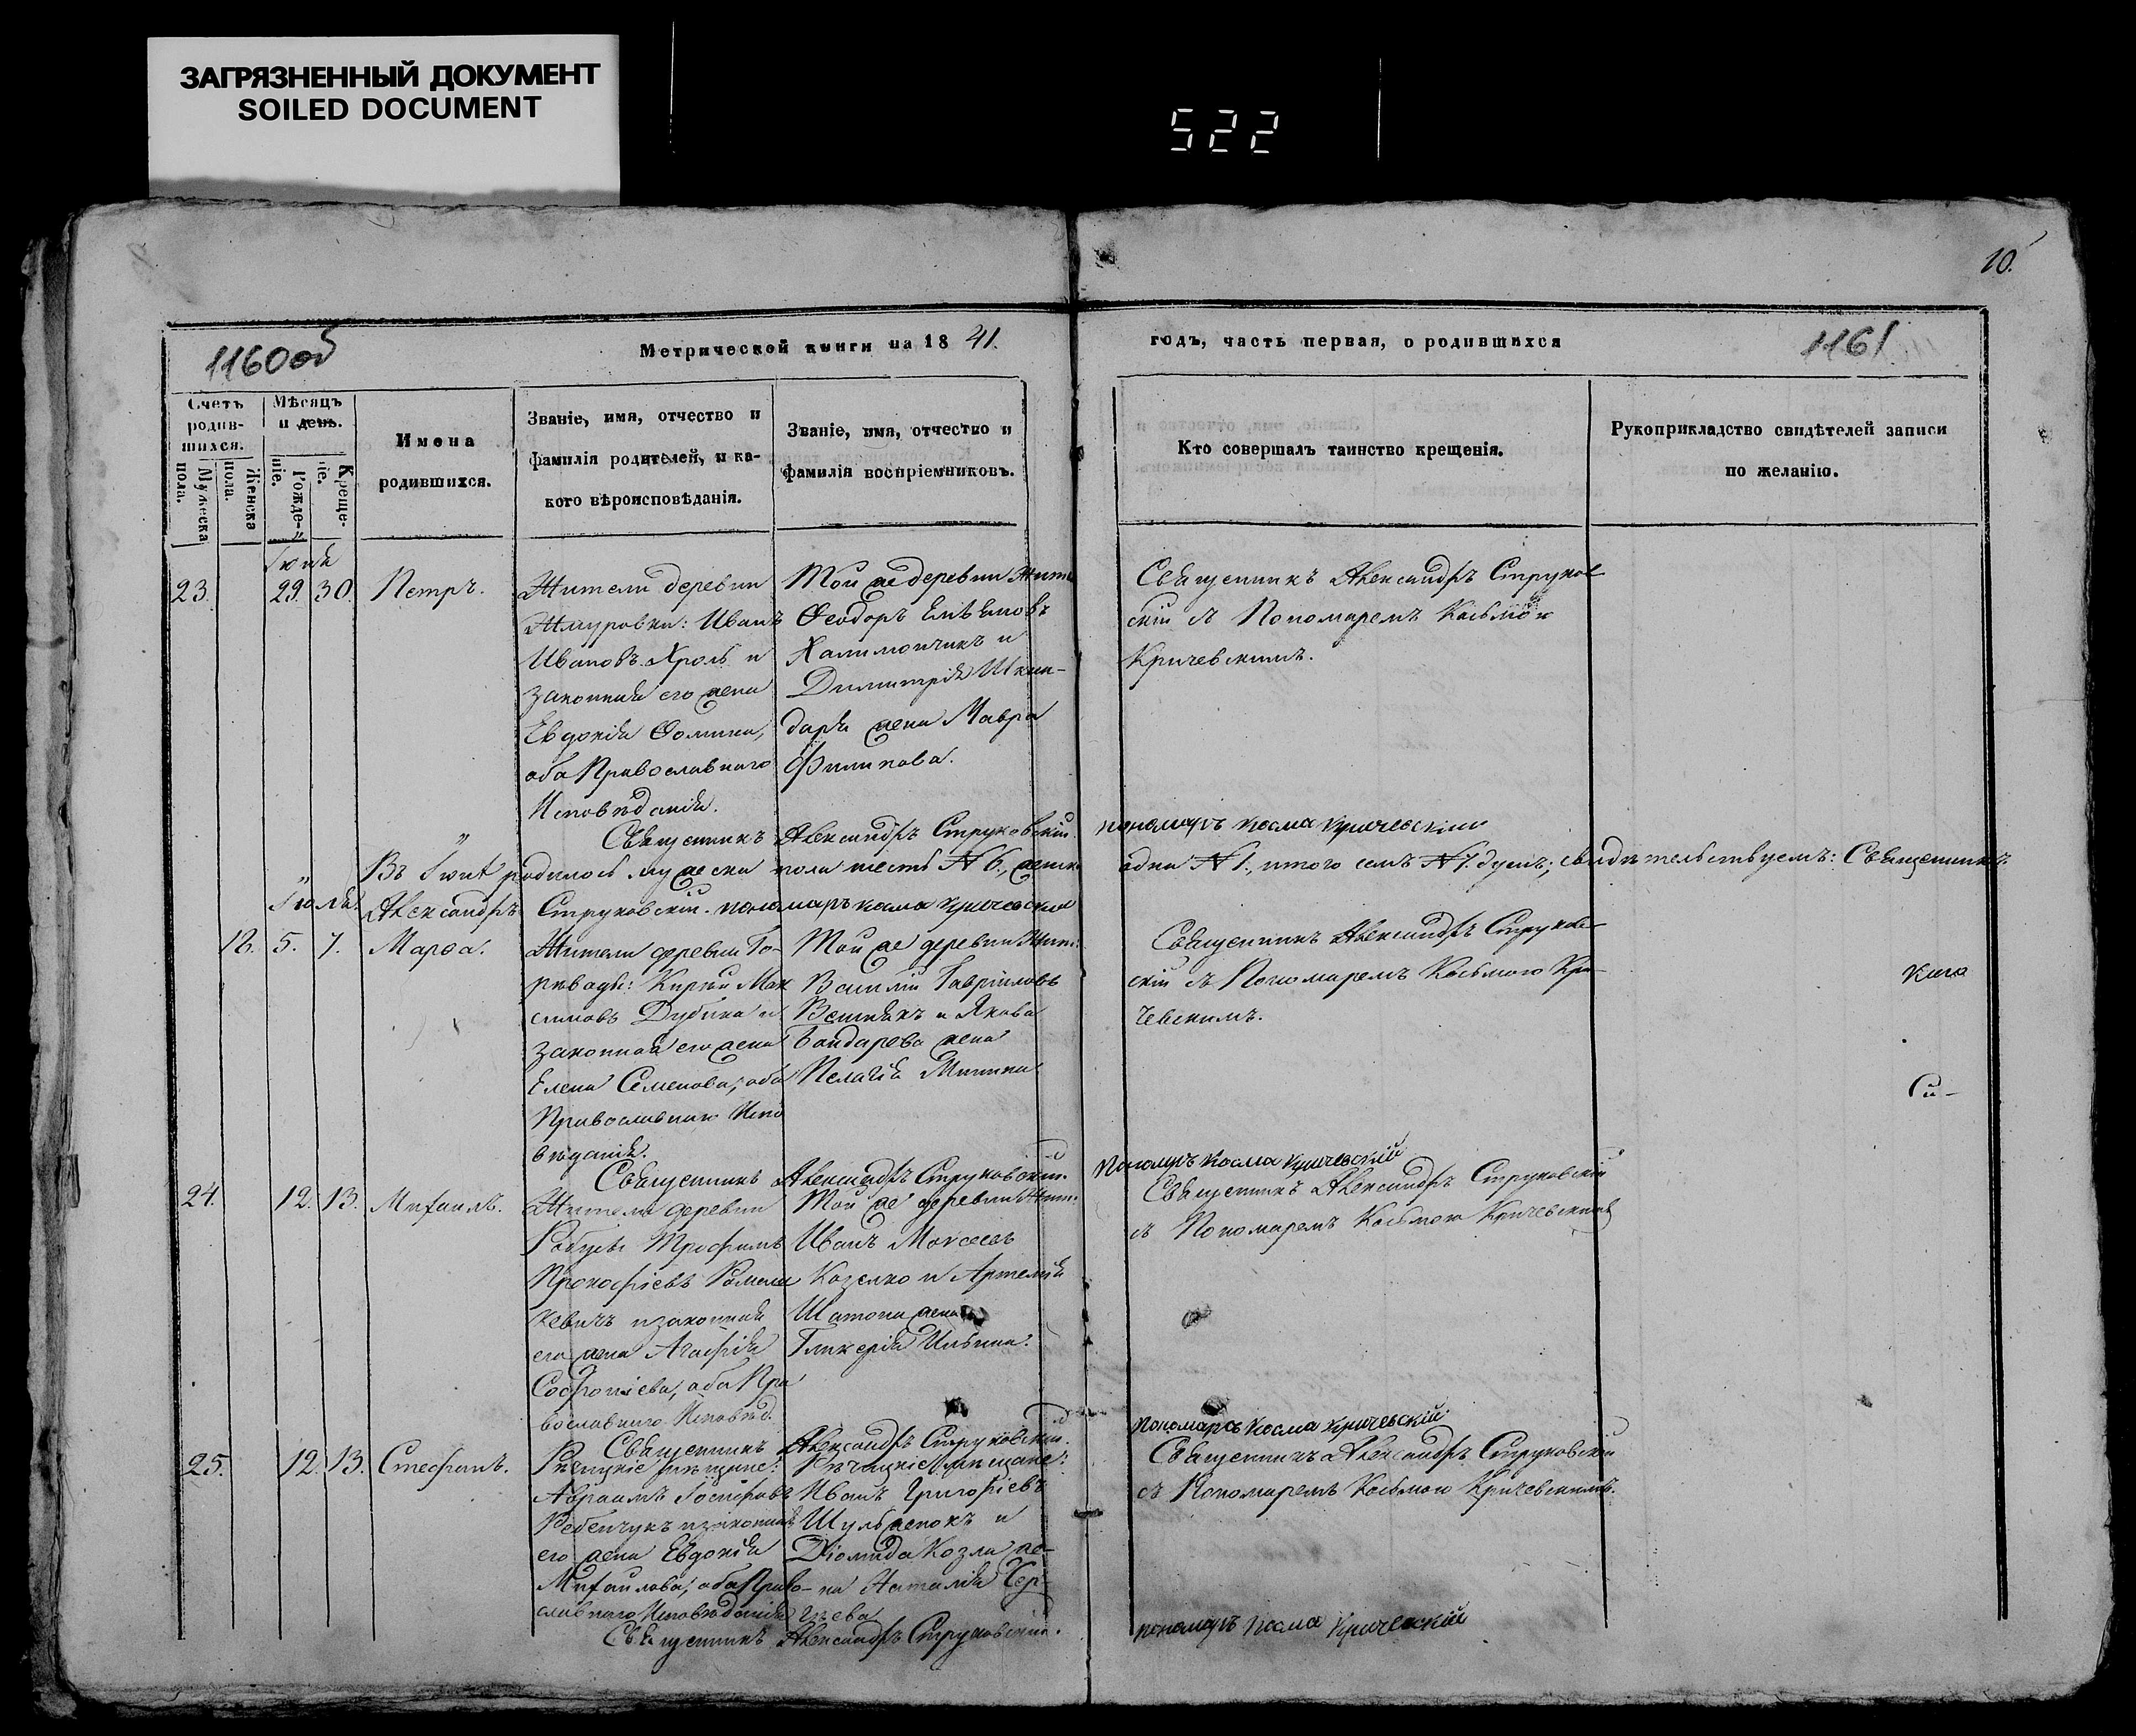 ЗАГРЯЗНЕННЫЙ ДОКУМЕНТ
SOILED DOCUMENT
522
10.
1160 об
Метрической книги на 18 41.
годъ, часть первая, о родившихся
1161
Счетъ родив-шихся.
Мужеска пола.
Женска пола.
Мѣсяцъ и день.
Рожде-ніе.
Креще-ніе.
Имена
родившихся.
Званіе, имя, отчество и
фамилія родителей, и ка-
кого вѣроисповѣданія.
Званіе, имя, отчество и
фамилія воспріемниковъ.
Кто совершалъ таинство крещенія.
Рукоприкладство свидѣтелей записи
по желанію.
Іюня
23. 29. 30. Петръ.
Жители деревни
Жмуровки: Иванъ
Ивановъ Хроль и
законная его жена
Евдокія Фомина,
оба Православнаго
Исповѣданія.
Той же деревни Жит.
Ѳеодоръ
Халимончикъ и
Димитрія Шкан-
даря жена Мавра
Филипова.
Священникъ АлександръСтруков-
скій съ Пономаремъ Косьмою
Кричевскимъ.
Священникъ Александръ Струковскій.
пономаръ Косма Кричевскій
Въ Іюнѣ родилось мужеска пола шесть № 6., женска
одна № 1., итого семъ № 7. душъ; свидѣтельствуемъ: Священникъ
Іюля.
Александръ Струковскій. пономаръ Косма Кричевскій
12. 5. 7. Марѳа.
Жители деревни Го-
ривады: Кирѣй Мак
симовъ Дубина и
законная его жена
Елена Семенова, оба
Православнаго Испо
вѣданія.
Той же деревни Жит:
Василій Гавріиловъ
и Якова
Бондарева жена
Пелагія Минина
Священникъ Александръ Струков-
скій съ Пономаремъ Косьмою Кри-
чевскимъ.
Священникъ Александръ Струковскій.
Пономаръ Косма Кричевскій
24. 12. 13. Михаилъ.
Жители деревни
Робусы Трофимъ
Прокофіевъ Ромаш
кевичъ и законная
его жена Агафія
Софроніева, оба Пра
вославнаго Исповѣд.
Той же деревни Жит:
Иванъ Моксеевъ
Козелко и Артемія
Шатона жена
Гликерія Ильина.
Священникъ Александръ Струковскій
съ Пономаремъ Косьмою Кричевскимъ
Священникъ Александръ Струковскій.
пономаръ Косма Кричевскій
25. 12. 13. Стефанъ.
Рѣчицкіе мѣщане:
Авраамъ Іосифовъ
Ребенчукъ и законная
его жена Евдокія
Михаилова, оба Право-
славнаго Исповѣданія
Рѣчицкіе мѣщане:
Иванъ Григоріевъ
Шульженокъ и
Діомида Козла же-
на Наталія Сер-
гѣева
Священникъ Александръ Струковскій
съ Пономаремъ Косьмою Кричевскимъ.
Священникъ Александръ Струковскій.
пономаръ Косма Кричевскій